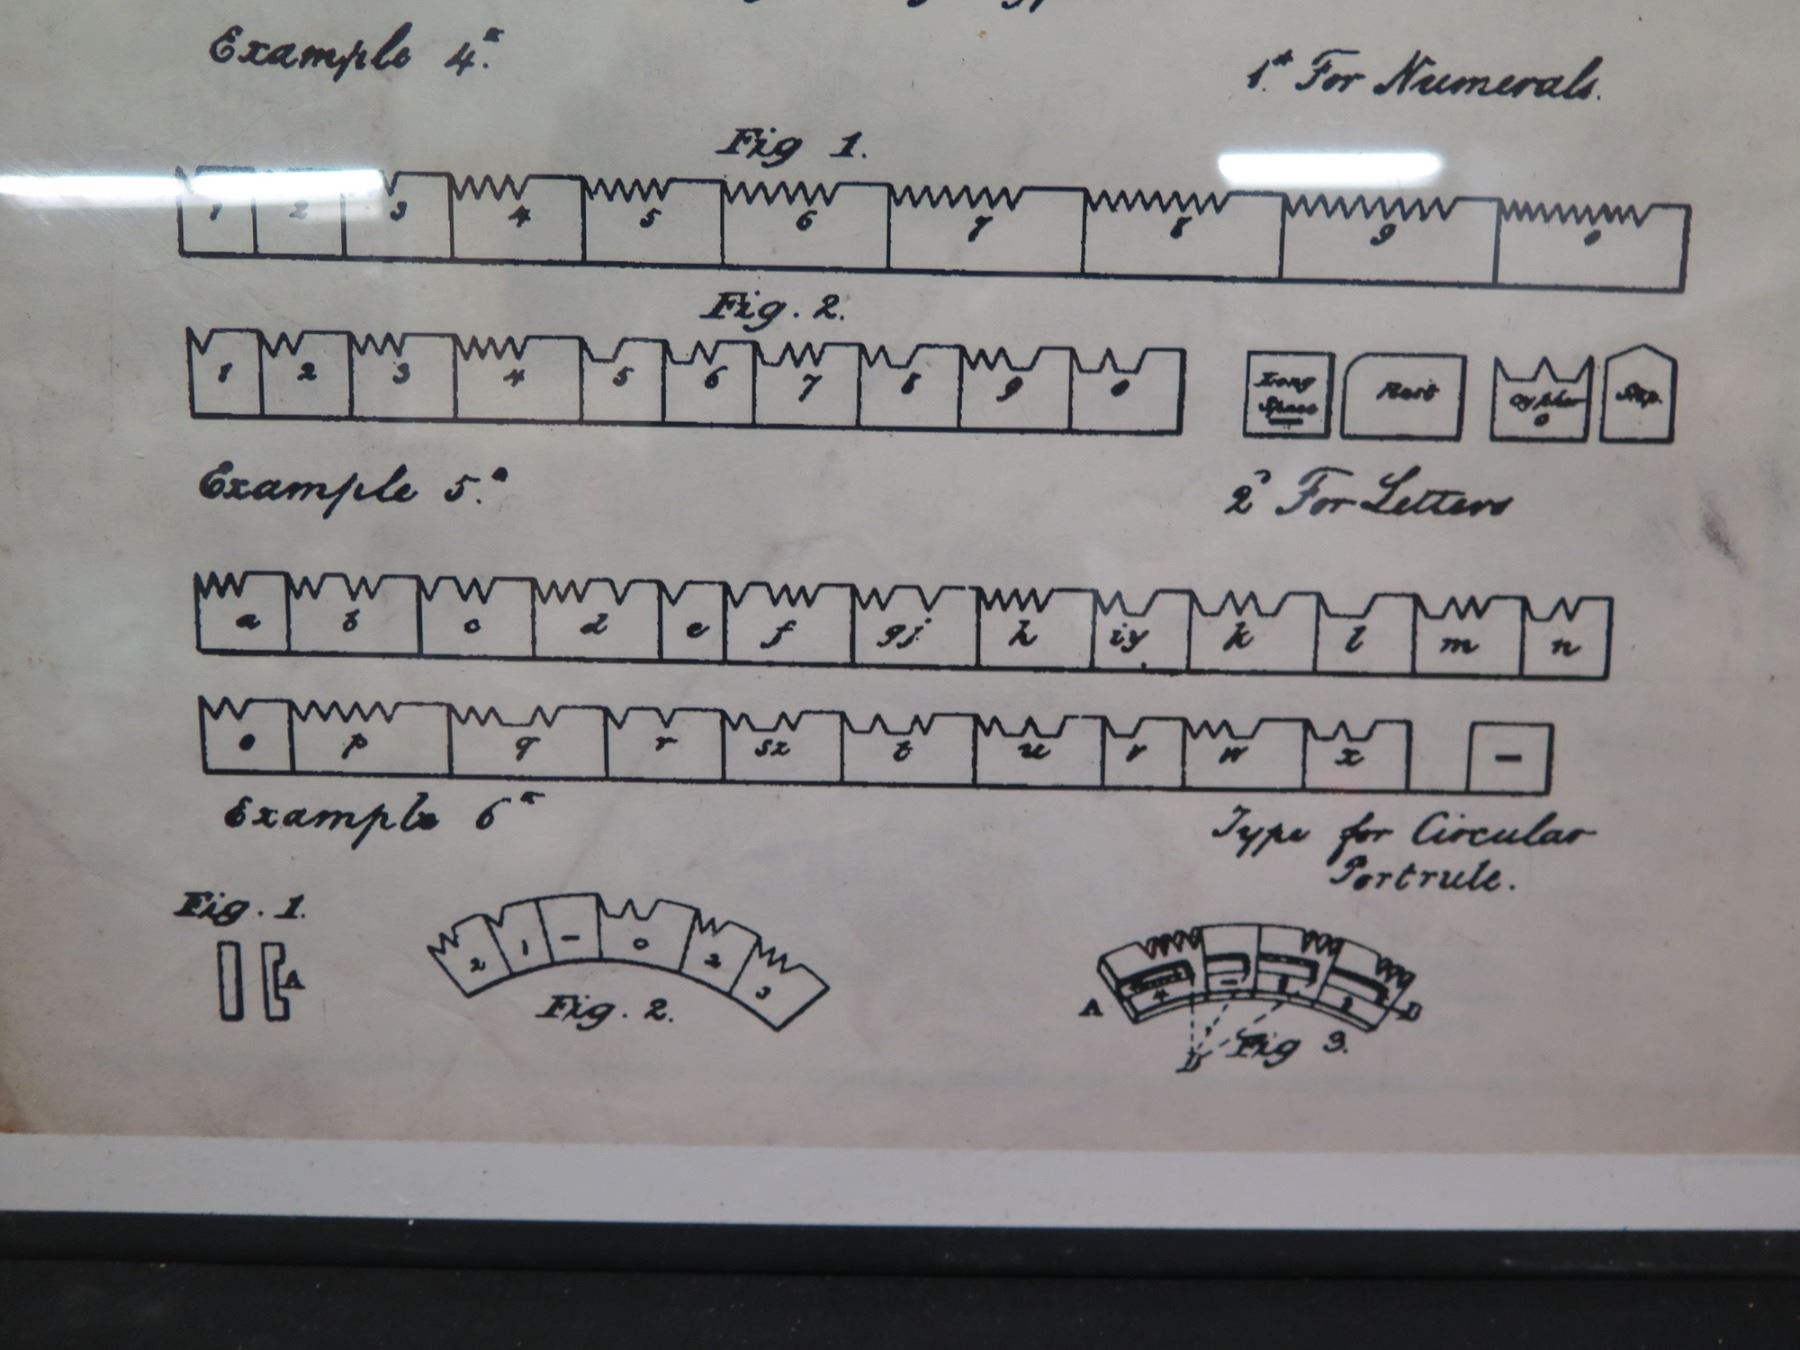 Example 4.
1st For Numerals.
Fig 1.
1 2 3 4 5 6 7 8 9 0
Fig. 2.
1 2 3 4 5 6 7 8 9 0
Long Space
Rest
Cypher 0
Stop.
Example 5.
2d For Letters
a b c d e f gj h iy k l m n
o p q r sz t u v w x –
Example 6
Type for Circular
Portrule.
Fig. 1.
A
2 1 – 0 2 3
Fig. 2.
A 4 – 2 D
Fig 3.